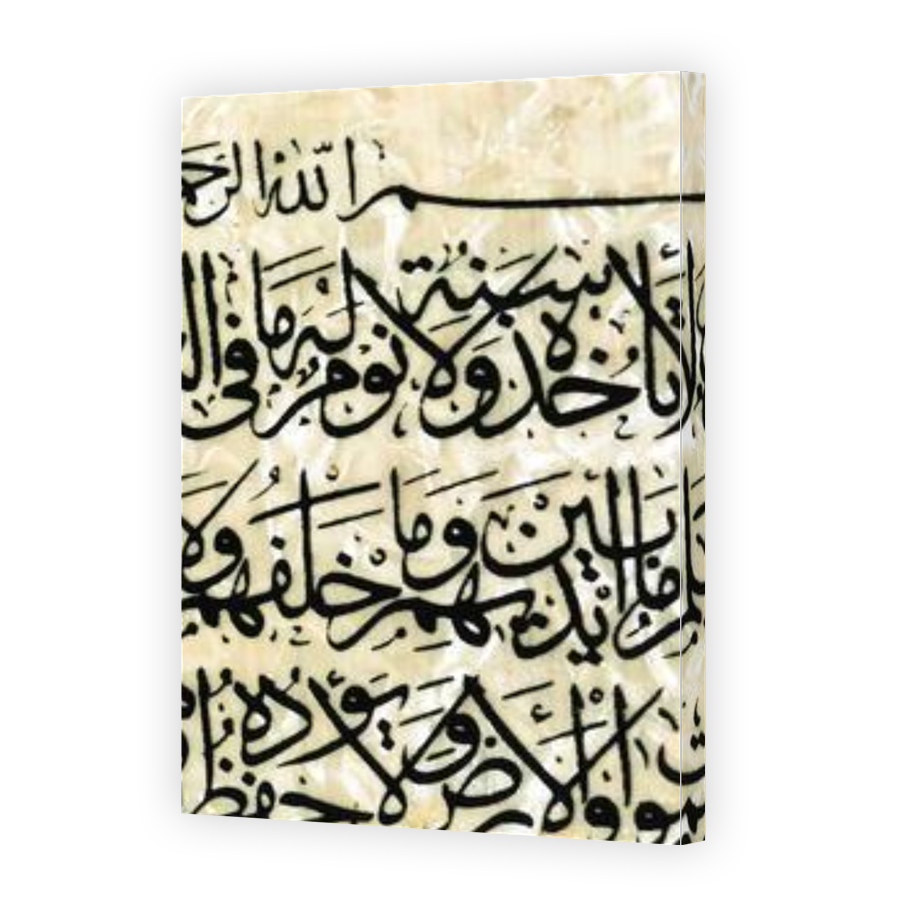 بسم الله الرحم
لا تأخذه سنة ولا نوم له ما في ال
لم ما بين أيديهم وما خلفهم ولا
سموات والأرض ولا يؤده حفظهما